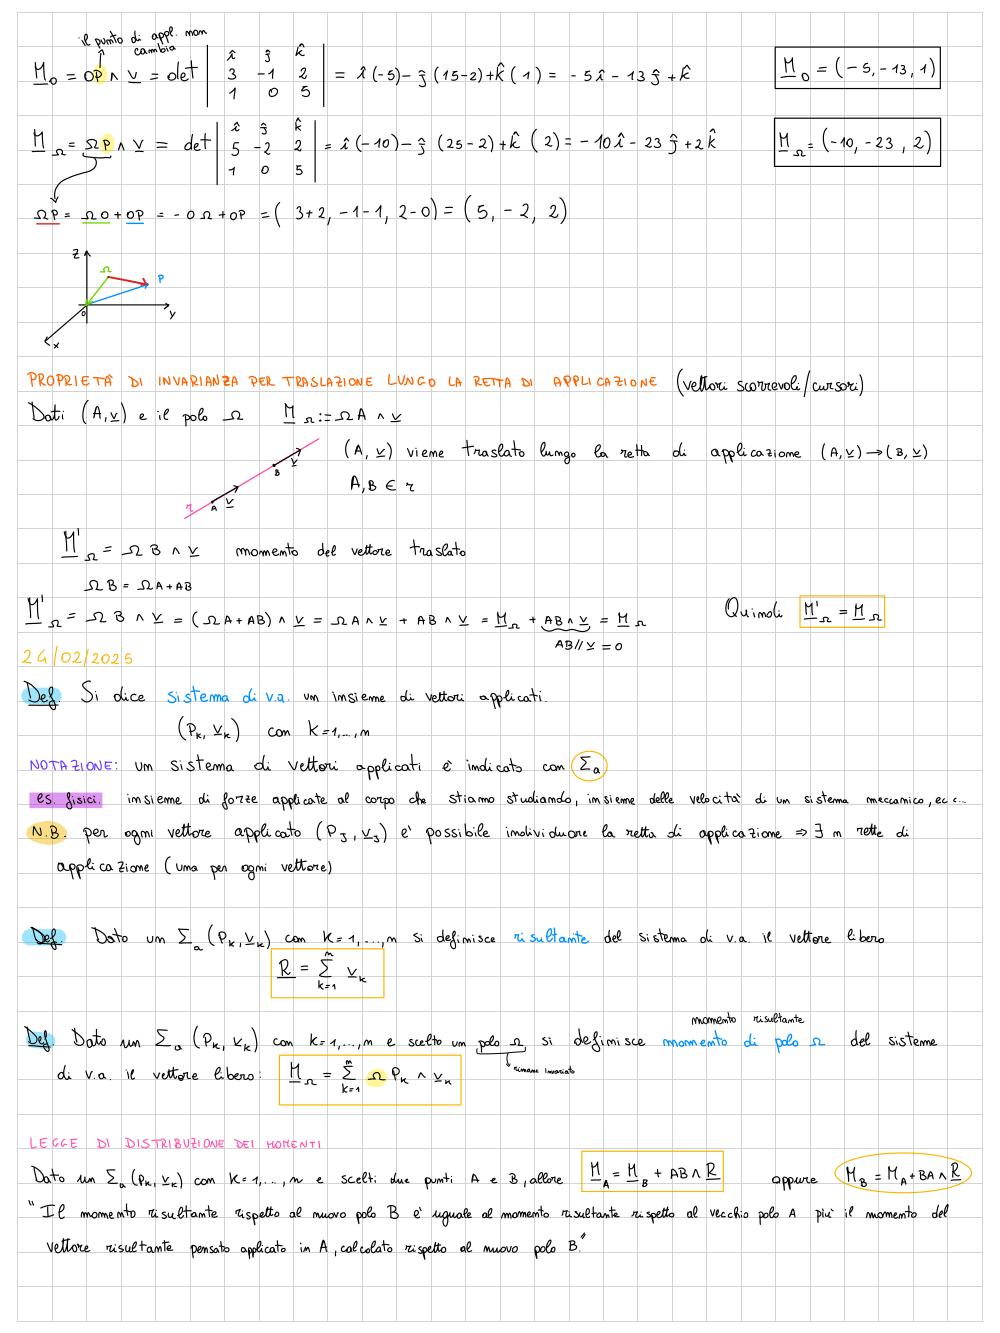 il punto di appl. non cambia
M_O = OP ∧ v = det | î ĵ k̂ ; 3 -1 2 ; 1 0 5 | = î(-5) - ĵ(15-2) + k̂(1) = -5î - 13ĵ + k̂    M_O = (-5, -13, 1)
M_Ω = ΩP ∧ v = det | î ĵ k̂ ; 5 -2 2 ; 1 0 5 | = î(-10) - ĵ(25-2) + k̂(2) = -10î - 23ĵ + 2k̂    M_Ω = (-10, -23, 2)
ΩP = ΩO + OP = -OΩ + OP = (3+2, -1-1, 2-0) = (5, -2, 2)
z
Ω
P
O
y
x
PROPRIETÀ DI INVARIANZA PER TRASLAZIONE LUNGO LA RETTA DI APPLICAZIONE (vettori scorrevoli/cursori)
Dati (A, v) e il polo Ω    M_Ω := ΩA ∧ v
(A, v) viene traslato lungo la retta di applicazione (A, v) → (B, v)
A, B ∈ r
B v
r A v
M'_Ω = ΩB ∧ v momento del vettore traslato
ΩB = ΩA + AB
M'_Ω = ΩB ∧ v = (ΩA + AB) ∧ v = ΩA ∧ v + AB ∧ v = M_Ω + AB ∧ v = M_Ω    Quindi M'_Ω = M_Ω
AB // v = 0
24/02/2025
Def. Si dice sistema di v.a. un insieme di vettori applicati.
(P_k, v_k) con k=1,...,n
NOTAZIONE: un sistema di vettori applicati è indicato con Σ_a
es. fisici. insieme di forze applicate al corpo che stiamo studiando, insieme delle velocità di un sistema meccanico, ecc...
N.B. per ogni vettore applicato (P_J, v_J) è possibile individuare la retta di applicazione ⇒ ∃ n rette di
applicazione (una per ogni vettore)
Def. Dato un Σ_a (P_k, v_k) con k=1,...,n si definisce risultante del sistema di v.a. il vettore libero
R = Σ_{k=1}^{n} v_k
momento risultante
Def. Dato un Σ_a (P_k, v_k) con k=1,...,n e scelto un polo Ω si definisce momento di polo Ω del sistema
rimane invariato
di v.a. il vettore libero: M_Ω = Σ_{k=1}^{n} ΩP_k ∧ v_k
LEGGE DI DISTRIBUZIONE DEI MOMENTI
Dato un Σ_a (P_k, v_k) con k=1,...,n e scelti due punti A e B, allora M_A = M_B + AB ∧ R oppure M_B = M_A + BA ∧ R
"Il momento risultante rispetto al nuovo polo B è uguale al momento risultante rispetto al vecchio polo A più il momento del
vettore risultante pensato applicato in A, calcolato rispetto al nuovo polo B."